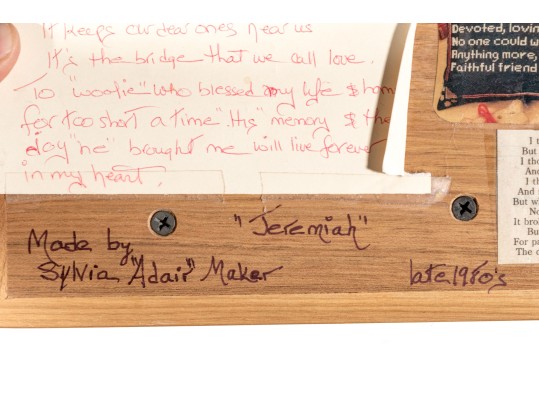 It keeps our dear ones near us
It's the bridge that we call love.
To "wootie" who blessed my life & hom
for too short a time "His" memory & the
day "he" brought me will live forever
in my heart.
Devoted, lovin
No one could w
Anything more,
Faithful friend
I t
But
I tho
And
I th
And
But wh
No
It bro
Bu
For pa
The d
"Jeremiah"
Made by
Sylvia "Adair" Maker
late 1980's